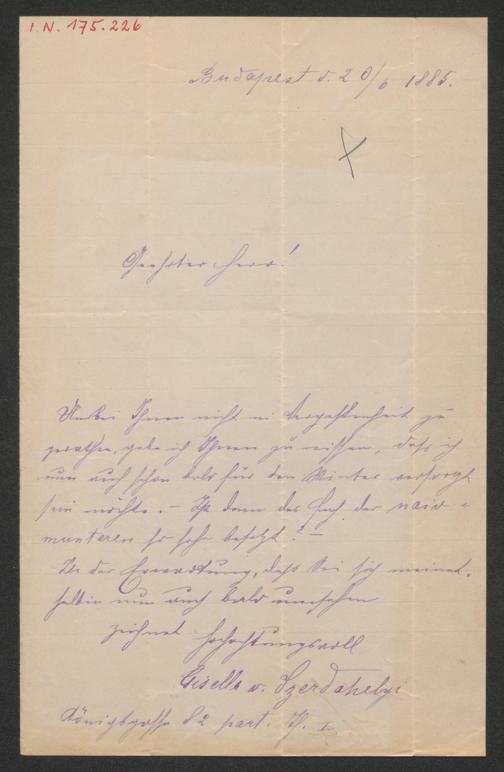 I.N. 175.226
Budapest d. 20/6 1885.
Geehrter Herr!
Um bei Ihnen nicht in Vergessenheit zu
gerathen, gebe ich Ihnen zu wissen, daß ich
nun auch schon bald für den Winter versorgt
sein möchte. – Ist denn das Fach der naiv =
munteren so sehr besetzt? –
In der Erwartung, daß Sie sich meinet-
halben nun auch bald umsehen
zeichnet hochachtungsvoll
Gisella v. Szerdahelyi
Königsgasse 82 part. Th. I.